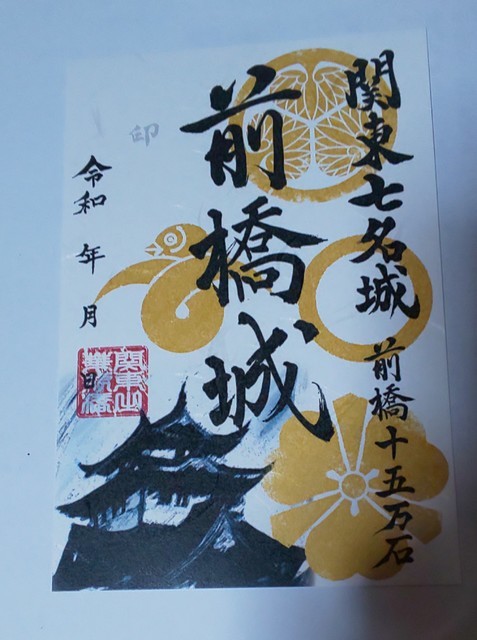 関東七名城 前橋十五万石
前橋城
印
令和 年 月 日